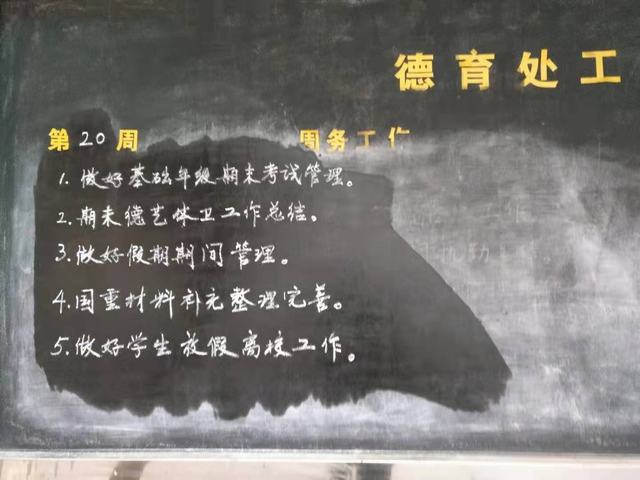 德育处工
第20周 周务工作
1.做好基础年级期末考试管理。
2.期末德艺体卫工作总结。
3.做好假期期间管理。
4.国重材料补充整理完善。
5.做好学生放假离校工作。